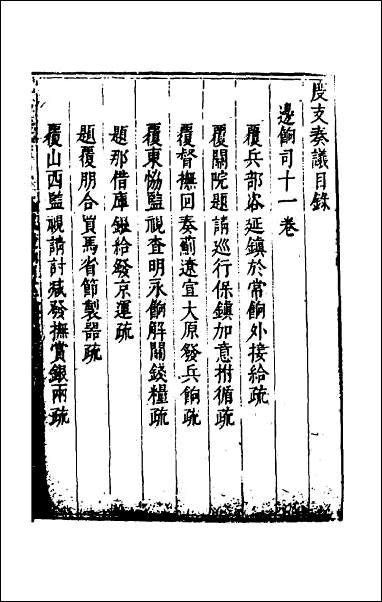 度支奏議目錄
邊餉司十一卷
覆兵部咨延鎮於常餉外接給疏
覆關院題請巡行保鎮加意拊循疏
覆督撫回奏薊遼宣大原發兵餉疏
覆東恊監視查明永餉解關錢糧疏
題那借庫銀給發京運疏
題覆朋合買馬省節製器疏
覆山西監視請討减發撫賞銀兩疏